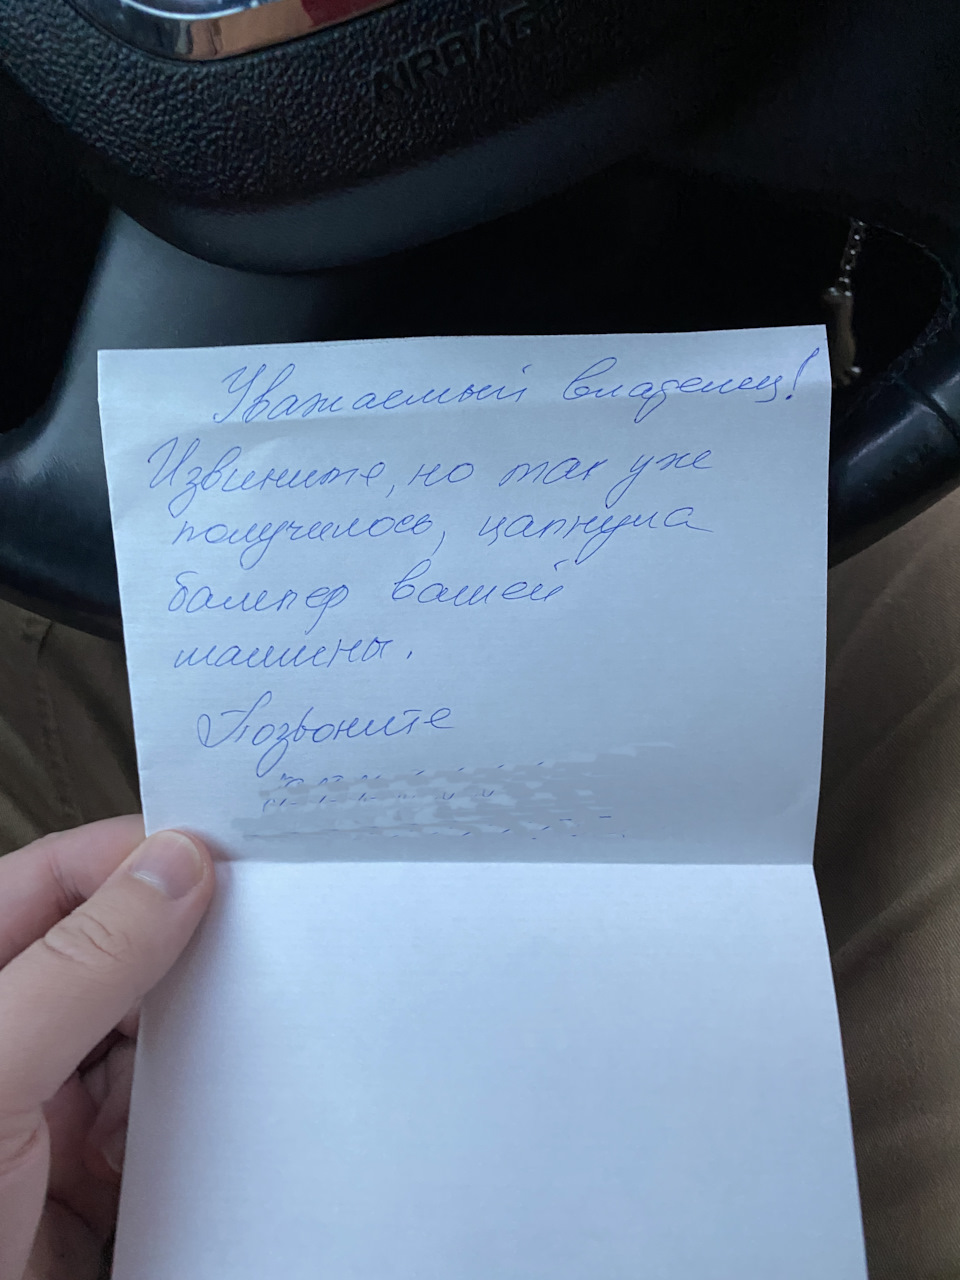 AIRBAG
Уважаемый владелец!
Извините, но так уже
получилось, цапнула
бампер вашей
машины.
Позвоните